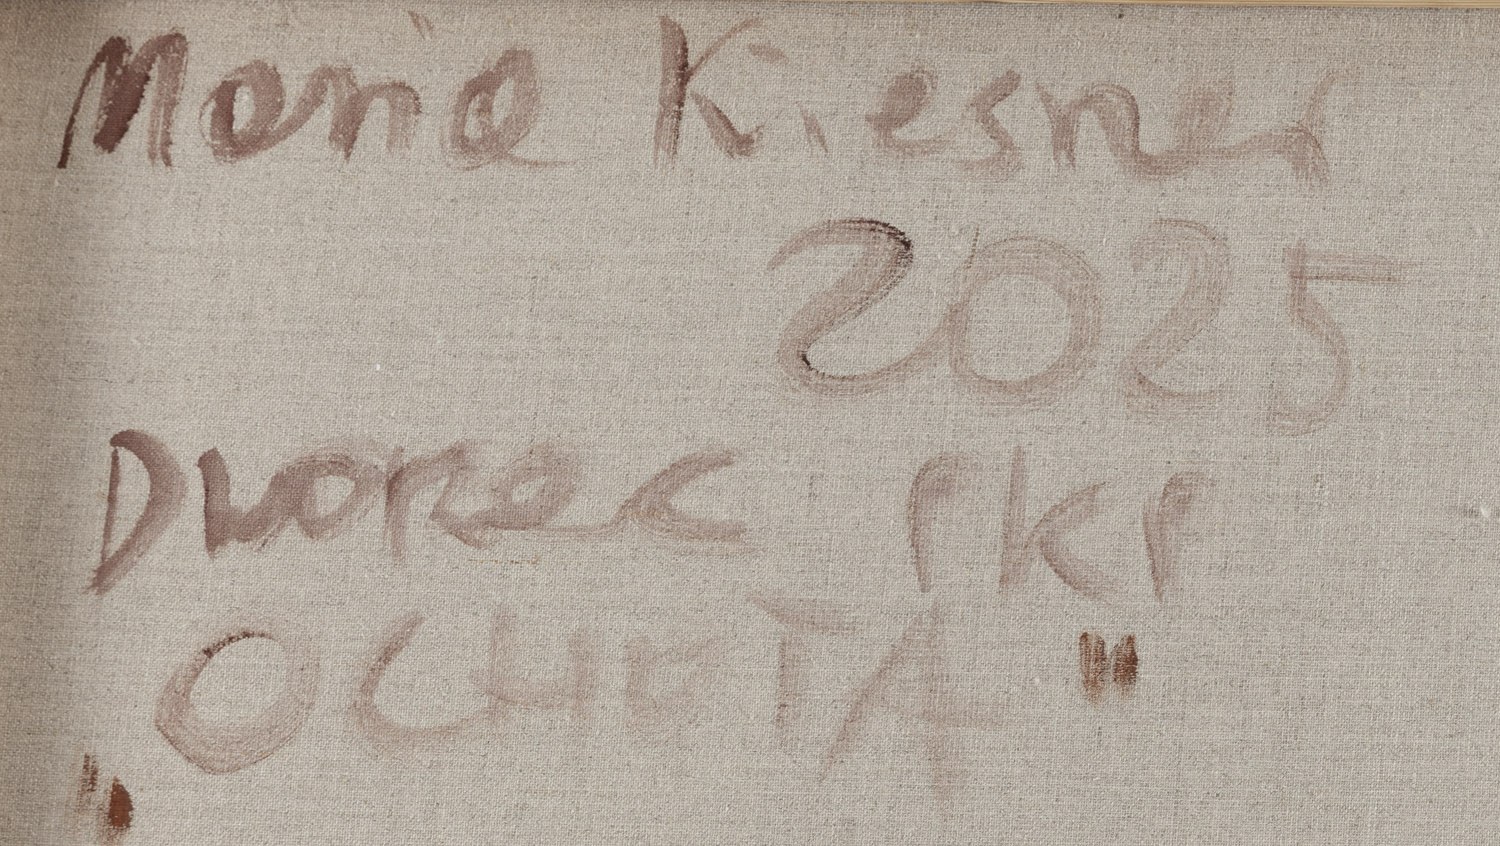 Maria Kiesner
2025
Dworzec PKP
OCHOTA"
"